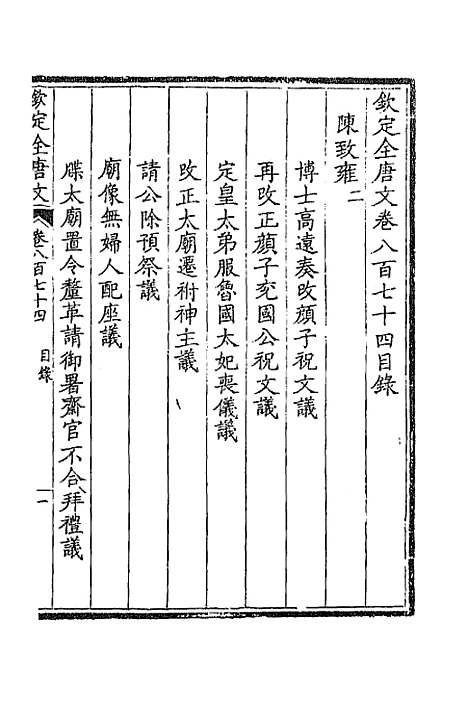 欽定全唐文卷八百七十四目錄
陳致雍二
博士高遠奏改顏子祝文議
再改正顏子兖國公祝文議
定皇太弟服魯國太妃喪儀議
改正太廟遷祔神主議
請公除預祭議
廟像無婦人配座議
牒太廟置令釐革請御署齋官不合拜禮議
欽定全唐文
卷八百七十四
目錄
一